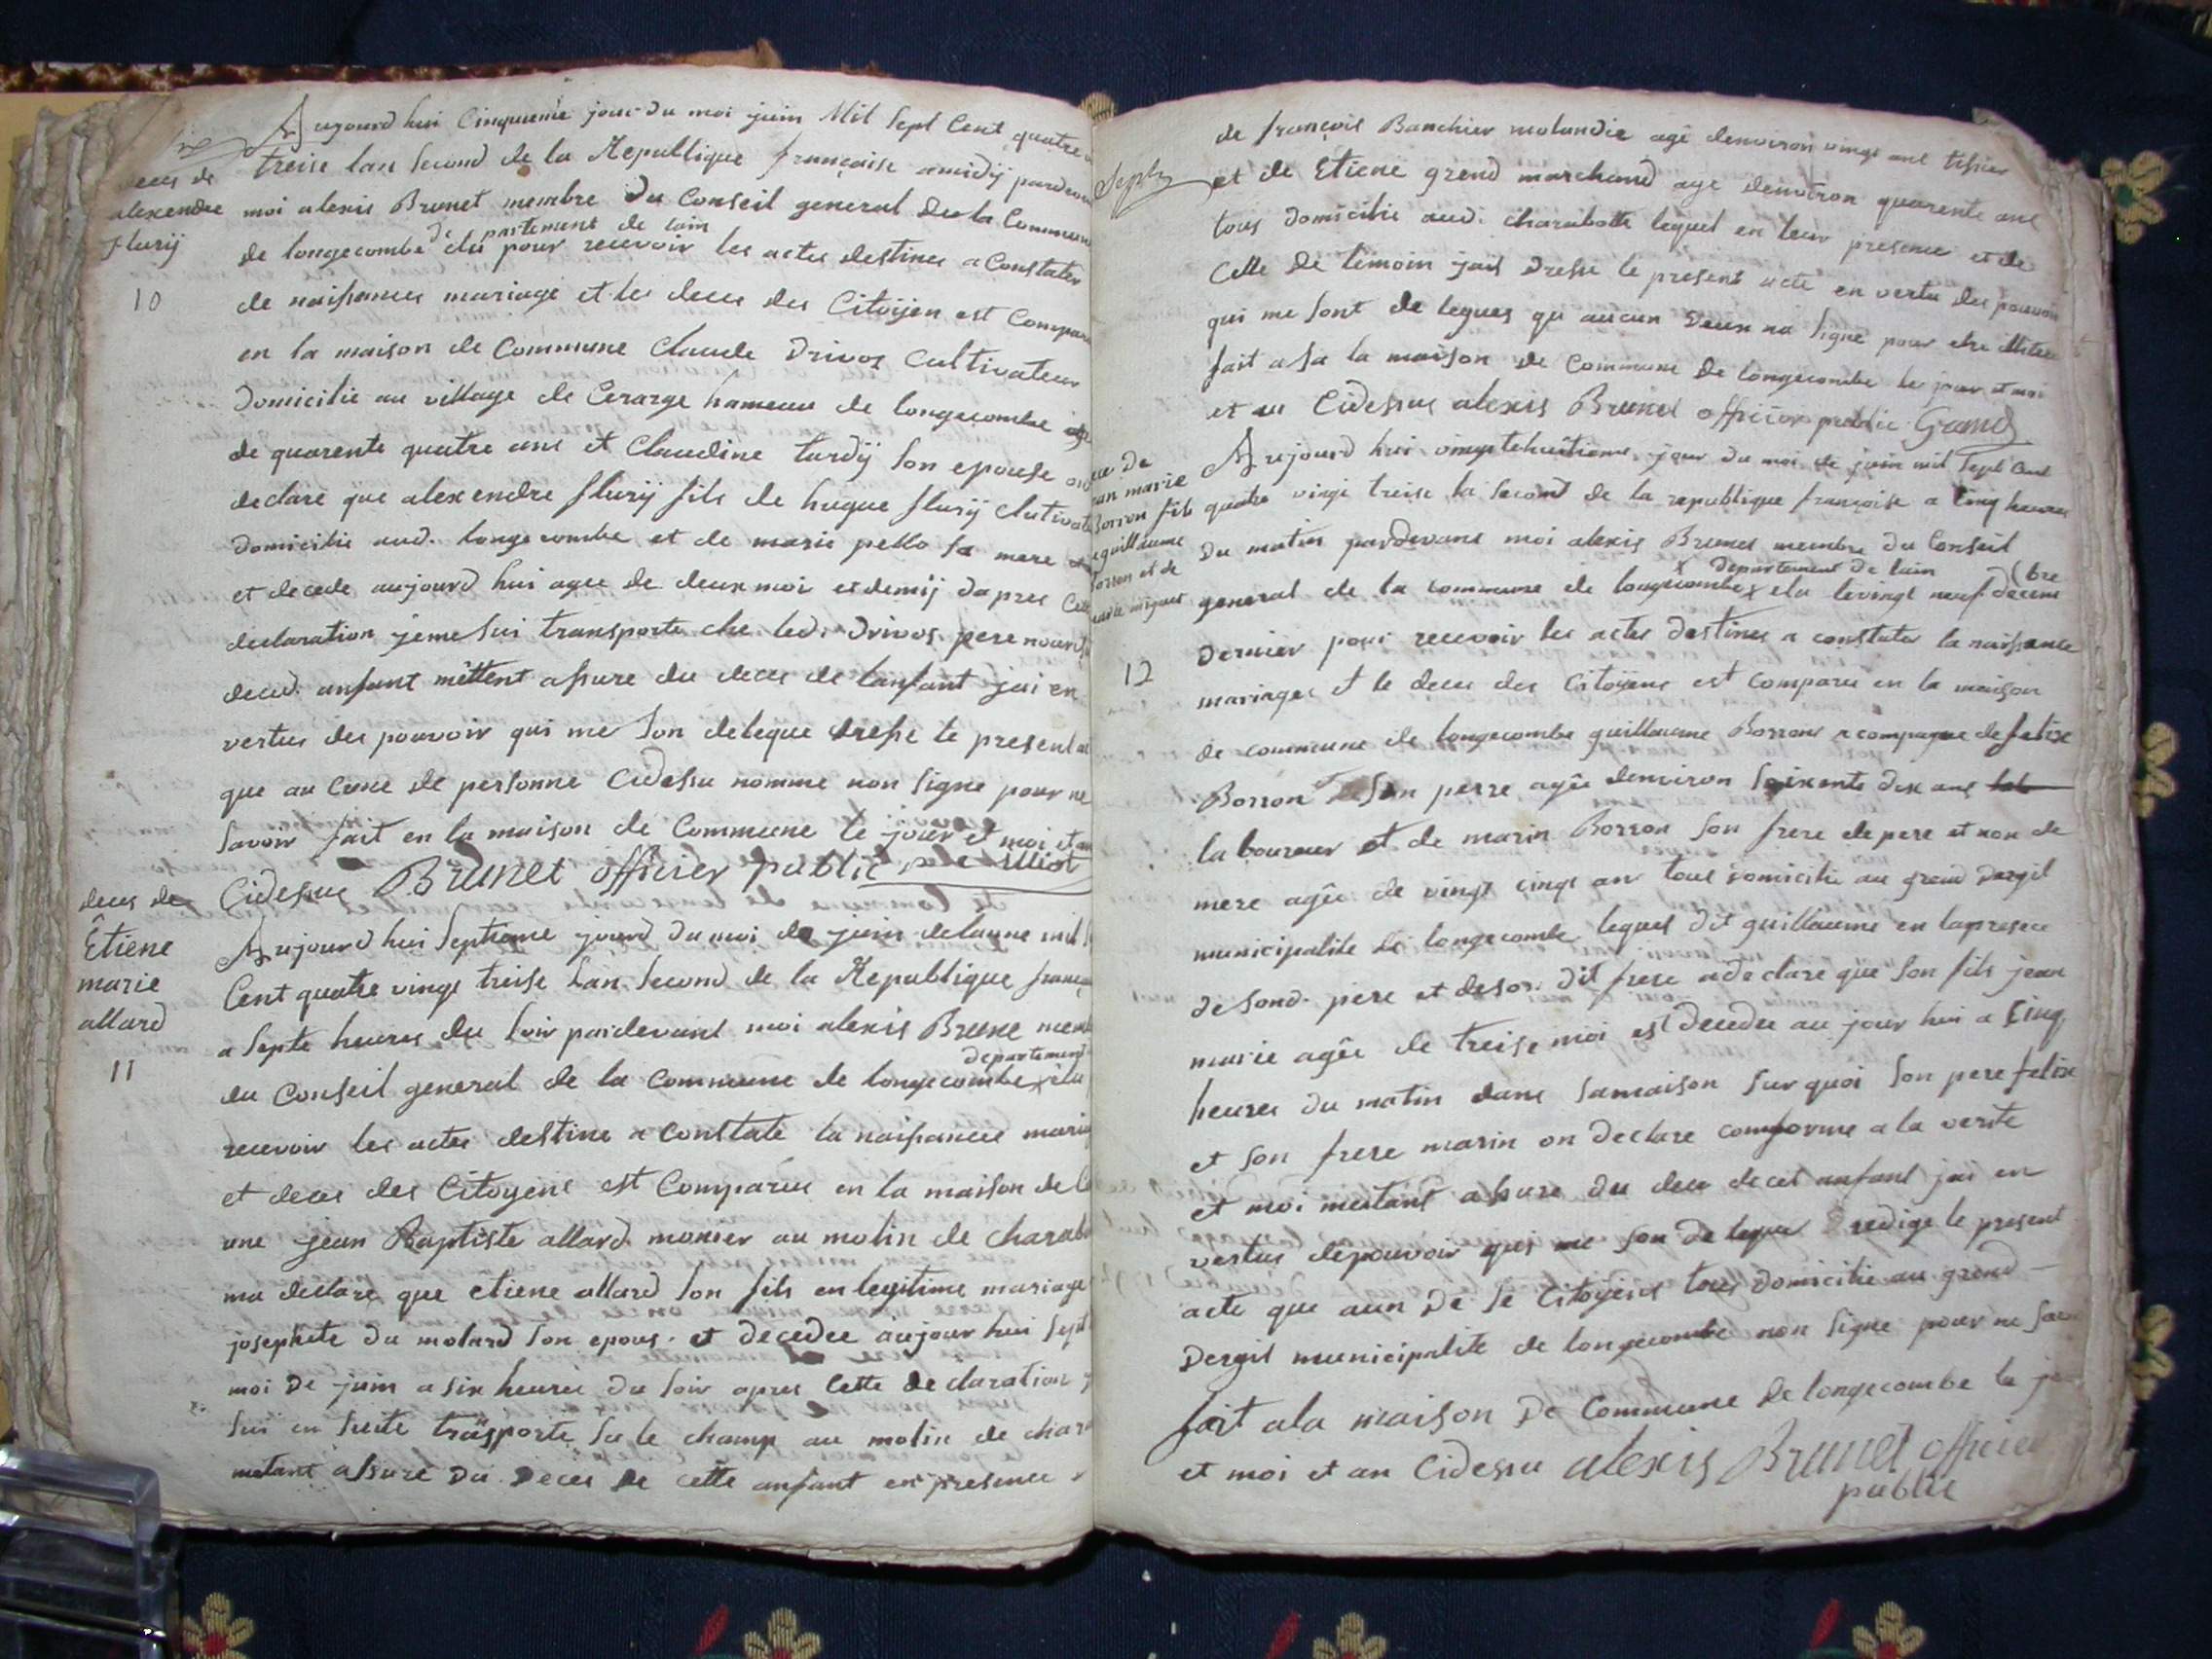 Aujourd hui Cinquieme jour du moi juin Mil Sept Cent quatre
treise lan Second de la Republique française a midij pardevan
deces de
alexendre
flurij
moi alexis Brunet membre du Conseil general de la Commun
departement de lain
de longecombe elu pour recevoir les actes destines a Constater
10
de naissances mariage et les deces des Citoijen est Compar
en la maison de Commune Claude Drivos Cultivateur
domicilie au village de Cerarge hameau de longecombe age
de quarente quatre ans et Claudine turdij Son epouse
declare que alexendre flurij fils de hugue flurij Clutivat
domicilie aud. longecombe et de marie pello sa mere
et decede aujourd hui agee de deux moi et demij dapres Cette
declaration jeme Sui transporte che led. Drivos pere nouris
decud. anfant mettent assure du deces de lanfant jai en
vertus des pouvoir qui me Son delegue dresse le present
que au Cune de personne Cidessu nomme non Signe pour ne
Savoir fait en la maison de Commune le jour et moi et an
Cidessus Brunet officier public
deces de
Êtiene
marie
allard
11
Aujourd hui Septieme jourd du moi de juin delanne mil
Cent quatre vingt treise Lan Second de la Republique franç
a Septe heures du Soir pardevant moi alexis Brune mem
departement
du Conseil general de la Commune de longecombe elu
recevoir les actes destine a Constate la naissances maria
et deces des Citoyens est Comparus en la maison de
une jean Baptiste allard monier au molin de charab
ma declare que etiene allard Son fils en legitime mariage
josephete du molard Son epous. et decedee aujour hui Sept
moi de juin a Six heures du Soir apres Cette declaration
Sui en Suite trasporte Su le champ au molin de char
metant assure du deces de cette anfant en presence
de françois Banchier molandie age denviron vingt ans tissier
et de Etiene grend marchand age denviron quarente ans
tous domicilie aud. charabotte lequel en leur presence et de
Celle de temoin jais dresse le present acte en vertu des pouvoir
qui me Sont de legues qu aucun deux na Signe pour etre illitere
fait a la maison de Commune de longecombe le jour et moi
et an Cidessus alexis Brunet officier public Grand
deces de
jean marie
Borron fils
de guillaume
Borron et de
12
Aujourd hui vingtehuitieme jour du moi de juin mil Sept Cent
quatre vingt treise la Second de la republique françoise a Cinq heures
du matin pardevans moi alexis Brunet membre du Conseil
departement de lain
general de la commune de longecombe x elu levingt neuf decembre
dernier pour recevoir les actes destines a constater la naissance
mariages et le deces des Citoyens est Comparu en la maison
de commune de longecombe guillaume Borron acompagne de felix
Borron Son perre agée denviron Soixante dix ans
la boureur et de marin Borron Son frere de pere et non de
mere agée de vingt cinqt an tous domicilie au grend dergil
municipalite de longecombe lequel dit guillaume en lapresece
de Sond. pere et deson dit frere adeclare que Son fils jean
marie agée de treise moi est decedee au jour hui a Cinq
heures du matin dans Samaison Sur quoi Son pere felix
et Son frere marin on declare comforme a la verite
et moi metant assure du dece decet anfant jai en
vertus depouvoir qui me Son de legue redige le present
acte que aun De Se Citoyens tous domicilie au grend
Dergil municipalite de longecombe non Signe pour ne Sa
fait ala maison De Commune de longecombe le jo
et moi et an Cidessu alexis Brunet officier
public